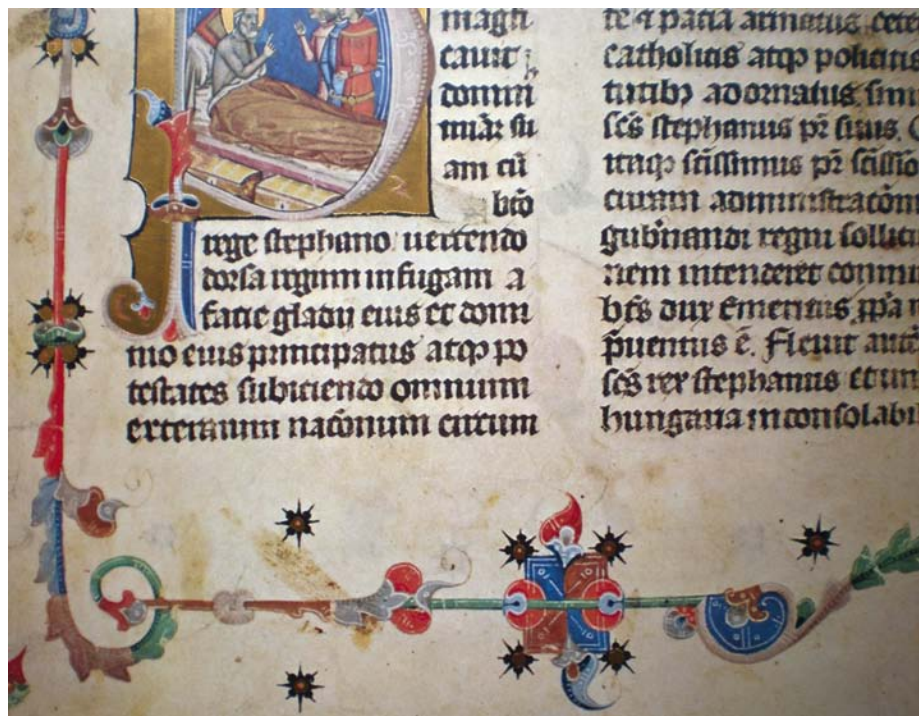 magfi
cavit
domin
muār su
am cū
bt̄o
rege stephano uertendo
dorsa regum in fugam a
facie gladij eius et domi
nio eius principatus atq̢ po
testates subiciendo omnium
exterarum nac̄onum circum
te ⁊ pacia armatus cete
catholicis atq̢ politicis
tutib₉ adornatus
sc̄s stephanus pr̄ suus
itaq̢ sc̄issimus pr̄
curam administrac̄om
gub̄nandi regni sollicit
nem intenderet
bt̄s dux Emericus
p̄uentus ē. Fleuit aute
sc̄s rex stephanus et un
hungaria inconsolabi